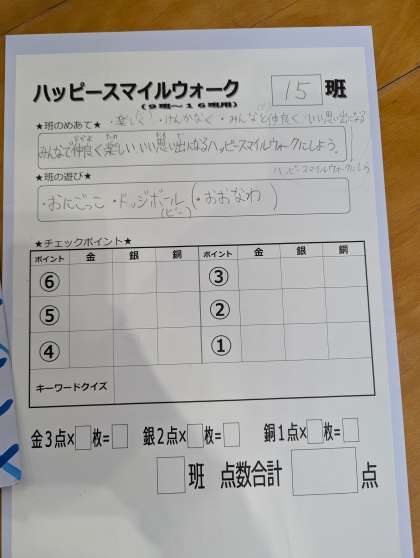 ハッピースマイルウォーク 15 班
(9班〜16班用)
★班のめあて★ ・楽しく ・けんかなく ・みんなと仲良く ・いい思い出になる
みんなで仲良く楽しい、いい思い出になるハッピースマイルウォークにしよう。
ハッピースマイルウォークにしよう
★班の遊び★
・おにごっこ ・ドッジボール (・おおなわ)
★チェックポイント★
ポイント 金 銀 銅 ポイント 金 銀 銅
⑥ ③
⑤ ②
④ ①
キーワードクイズ
金3点×□枚=□ 銀2点×□枚=□ 銅1点×□枚=□
□班 点数合計 □点